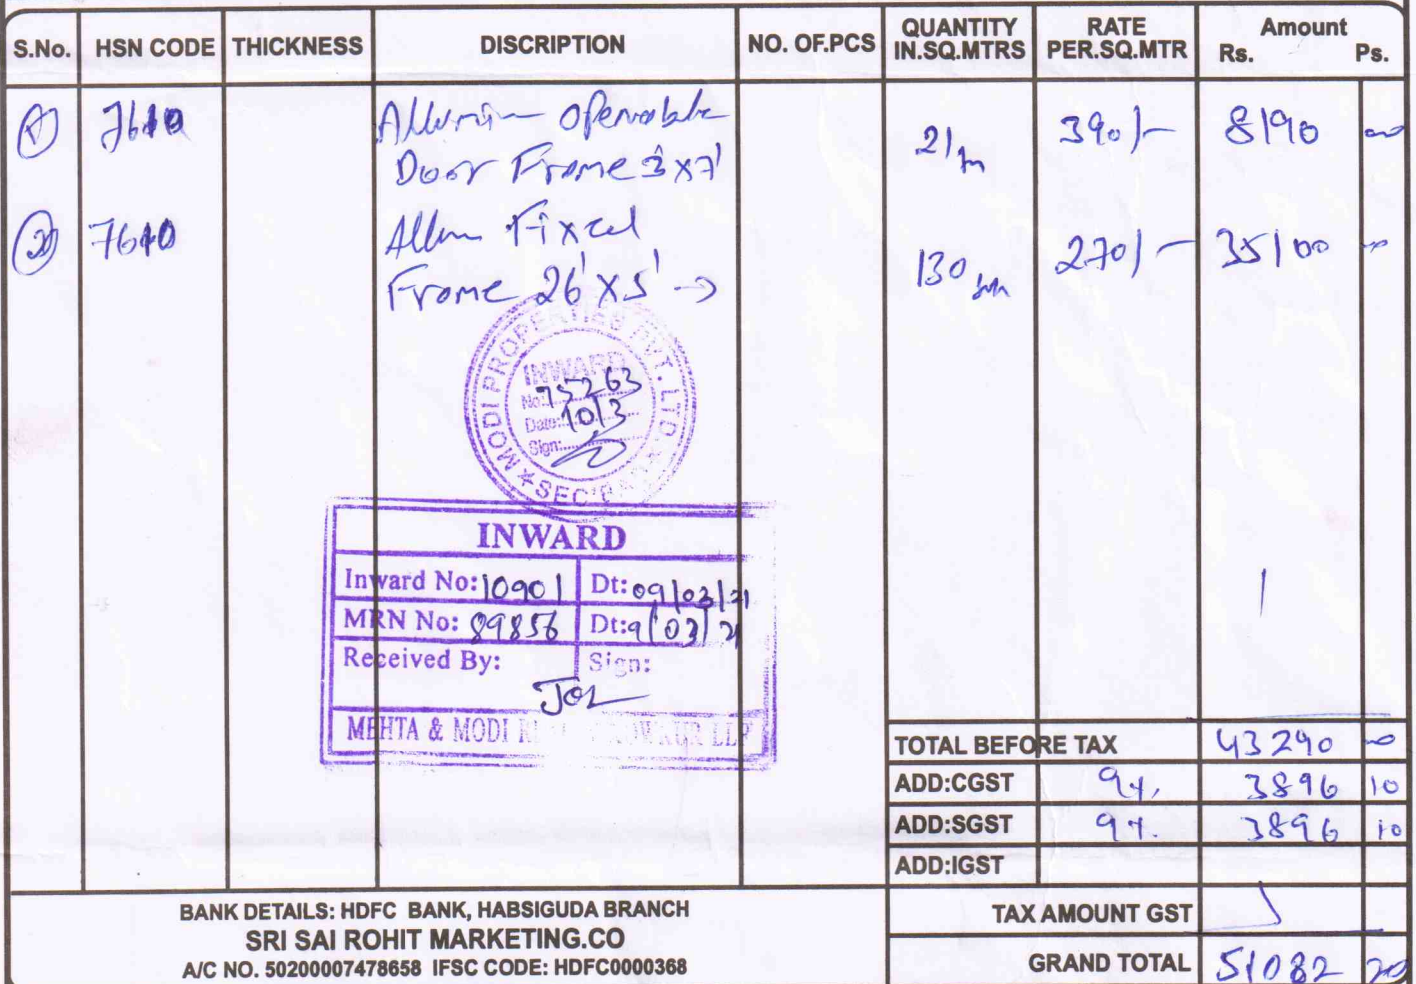 S.No. HSN CODE THICKNESS DISCRIPTION NO. OF.PCS QUANTITY IN.SQ.MTRS RATE PER.SQ.MTR Amount Rs. Ps.
1 7610 Openable 21 390/- 8190 00
Door Frame 3'x7'
2 7610 Allum Fixed 130 270/- 35100 00
Frame 26'x5' →
MODI PROPERTIES PVT. LTD. ★ SEC'BAD ★
INWARD
No: 75263
Date: 10/3
Sign:
INWARD
Inward No: 10901 Dt: 09/03/21
MRN No: 89856 Dt: 9/03/21
Received By: Sign:
MEHTA & MODI LLP
TOTAL BEFORE TAX 43290 00
ADD:CGST 9% 3896 10
ADD:SGST 9% 3896 10
ADD:IGST
TAX AMOUNT GST
GRAND TOTAL 51082 20
BANK DETAILS: HDFC BANK, HABSIGUDA BRANCH
SRI SAI ROHIT MARKETING.CO
A/C NO. 50200007478658 IFSC CODE: HDFC0000368